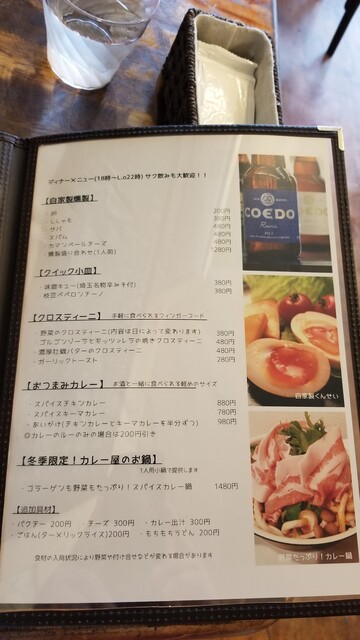 ディナーメニュー(18時～L.o22時) サク飲みも大歓迎！！
【自家製燻製】
・卵 200円
・ししゃも 380円
・サバ 480円
・スパム 480円
・カマンベールチーズ 480円
・燻製盛り合わせ(1人前) 1280円
【クイック小皿】
・味噌キュー(埼玉名物辛みそ付) 380円
・枝豆ペペロンチーノ 380円
【クロスティーニ】 手軽に食べられるフィンガーフード
・野菜のクロスティーニ(内容は日によって変わります) 380円
・ゴルゴンゾーラとモッツァレラの焼きクロスティーニ 480円
・濃厚牡蠣バターのクロスティーニ 480円
・ガーリックトースト 280円
【おつまみカレー】 お酒と一緒に食べられる軽めのサイズ
・スパイスチキンカレー 880円
・スパイスキーマカレー 780円
・あいがけ(チキンカレーとキーマカレーを半分ずつ) 980円
◎カレーのルーのみの場合は200円引き
【冬季限定！カレー屋のお鍋】
1人用小鍋で提供します
・コラーゲンも野菜もたっぷり！スパイスカレー鍋 1480円
【追加具材】
・パクチー 200円 ・チーズ 300円 ・カレー出汁 300円
・ごはん(ターメリックライス)200円 ・もちもちうどん 200円
食材の入荷状況により野菜や付け合せなどが変わる場合があります
COEDO
自家製くんせい
野菜たっぷり！カレー鍋